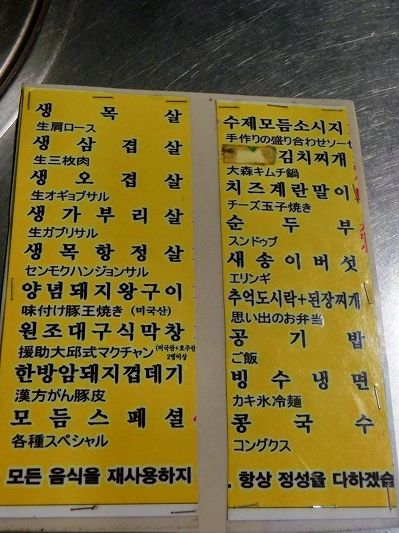 생목살
生肩ロース
생삼겹살
生三枚肉
생오겹살
生オギョプサル
생가부리살
生ガブリサル
생목항정살
センモクハンジョンサル
양념돼지왕구이
味付け豚王焼き (미국산)
원조대구식막창
援助大邱式マクチャン (미국산+호주산) 2인이상
한방암돼지껍데기
漢方がん豚皮
모듬스페셜
各種スペシャル
모든 음식을 재사용하지
수제모듬소시지
手作りの盛り合わせソーセ
김치찌개
大森キムチ鍋
치즈계란말이
チーズ玉子焼き
순두부
スンドゥブ
새송이버섯
エリンギ
추억도시락+된장찌개
思い出のお弁当
공기밥
ご飯
빙수냉면
カキ氷冷麺
콩국수
コングクス
. 항상 정성을 다하겠습